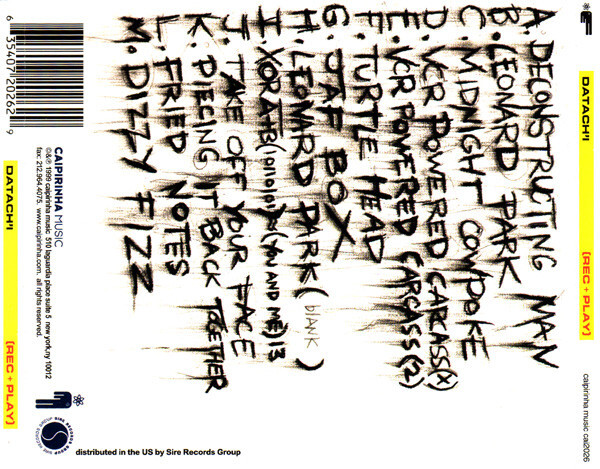 A. DECONSTRUCTING MAN
B. LEONARD PARK
C. MIDNIGHT COWPOKE
D. VCR POWERED CARCASS(X)
E. VCR POWERED CARCASS(2)
F. TURTLE HEAD
G. JAP BOX
H. LEONARD PARK (BLANK)
J. TAKE OFF YOUR FACE
K. PIECING IT BACK TOGETHER
L. FRIED NOTES
M. DIZZY FIZZ
6 35407 20262 9
CAIPIRINHA MUSIC
©&℗ 1999 caipirinha music 510 laguardia place suite 5 new york,ny 10012
fax: 212.964.4075. www.caipirinha.com. all rights reserved.
DATACH'I
[REC + PLAY]
SIRE RECORDS GROUP
distributed in the US by Sire Records Group
DATACH'I
[REC + PLAY]
caipirinha music cai2026